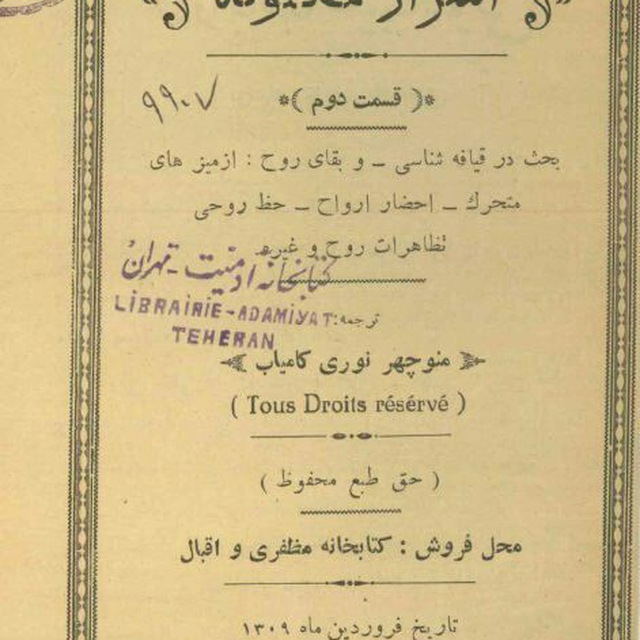 ۹۹۰۷
*( قسمت دوم )*
بحث در قیافه شناسی ــ و بقای روح : ازمیز های
متحرك ــ احضار ارواح ــ حظ روحی
تظاهرات روح و غیره
کتابخانه ادمیت - تهران
LIBRAIRIE-ADAMIYAT
TEHERAN
ترجمه:
منوچهر نوری کامیاب
( Tous Droits résérvé )
( حق طبع محفوظ )
محل فروش : کتابخانه مظفری و اقبال
تاریخ فروردین ماه ۱۳۰۹